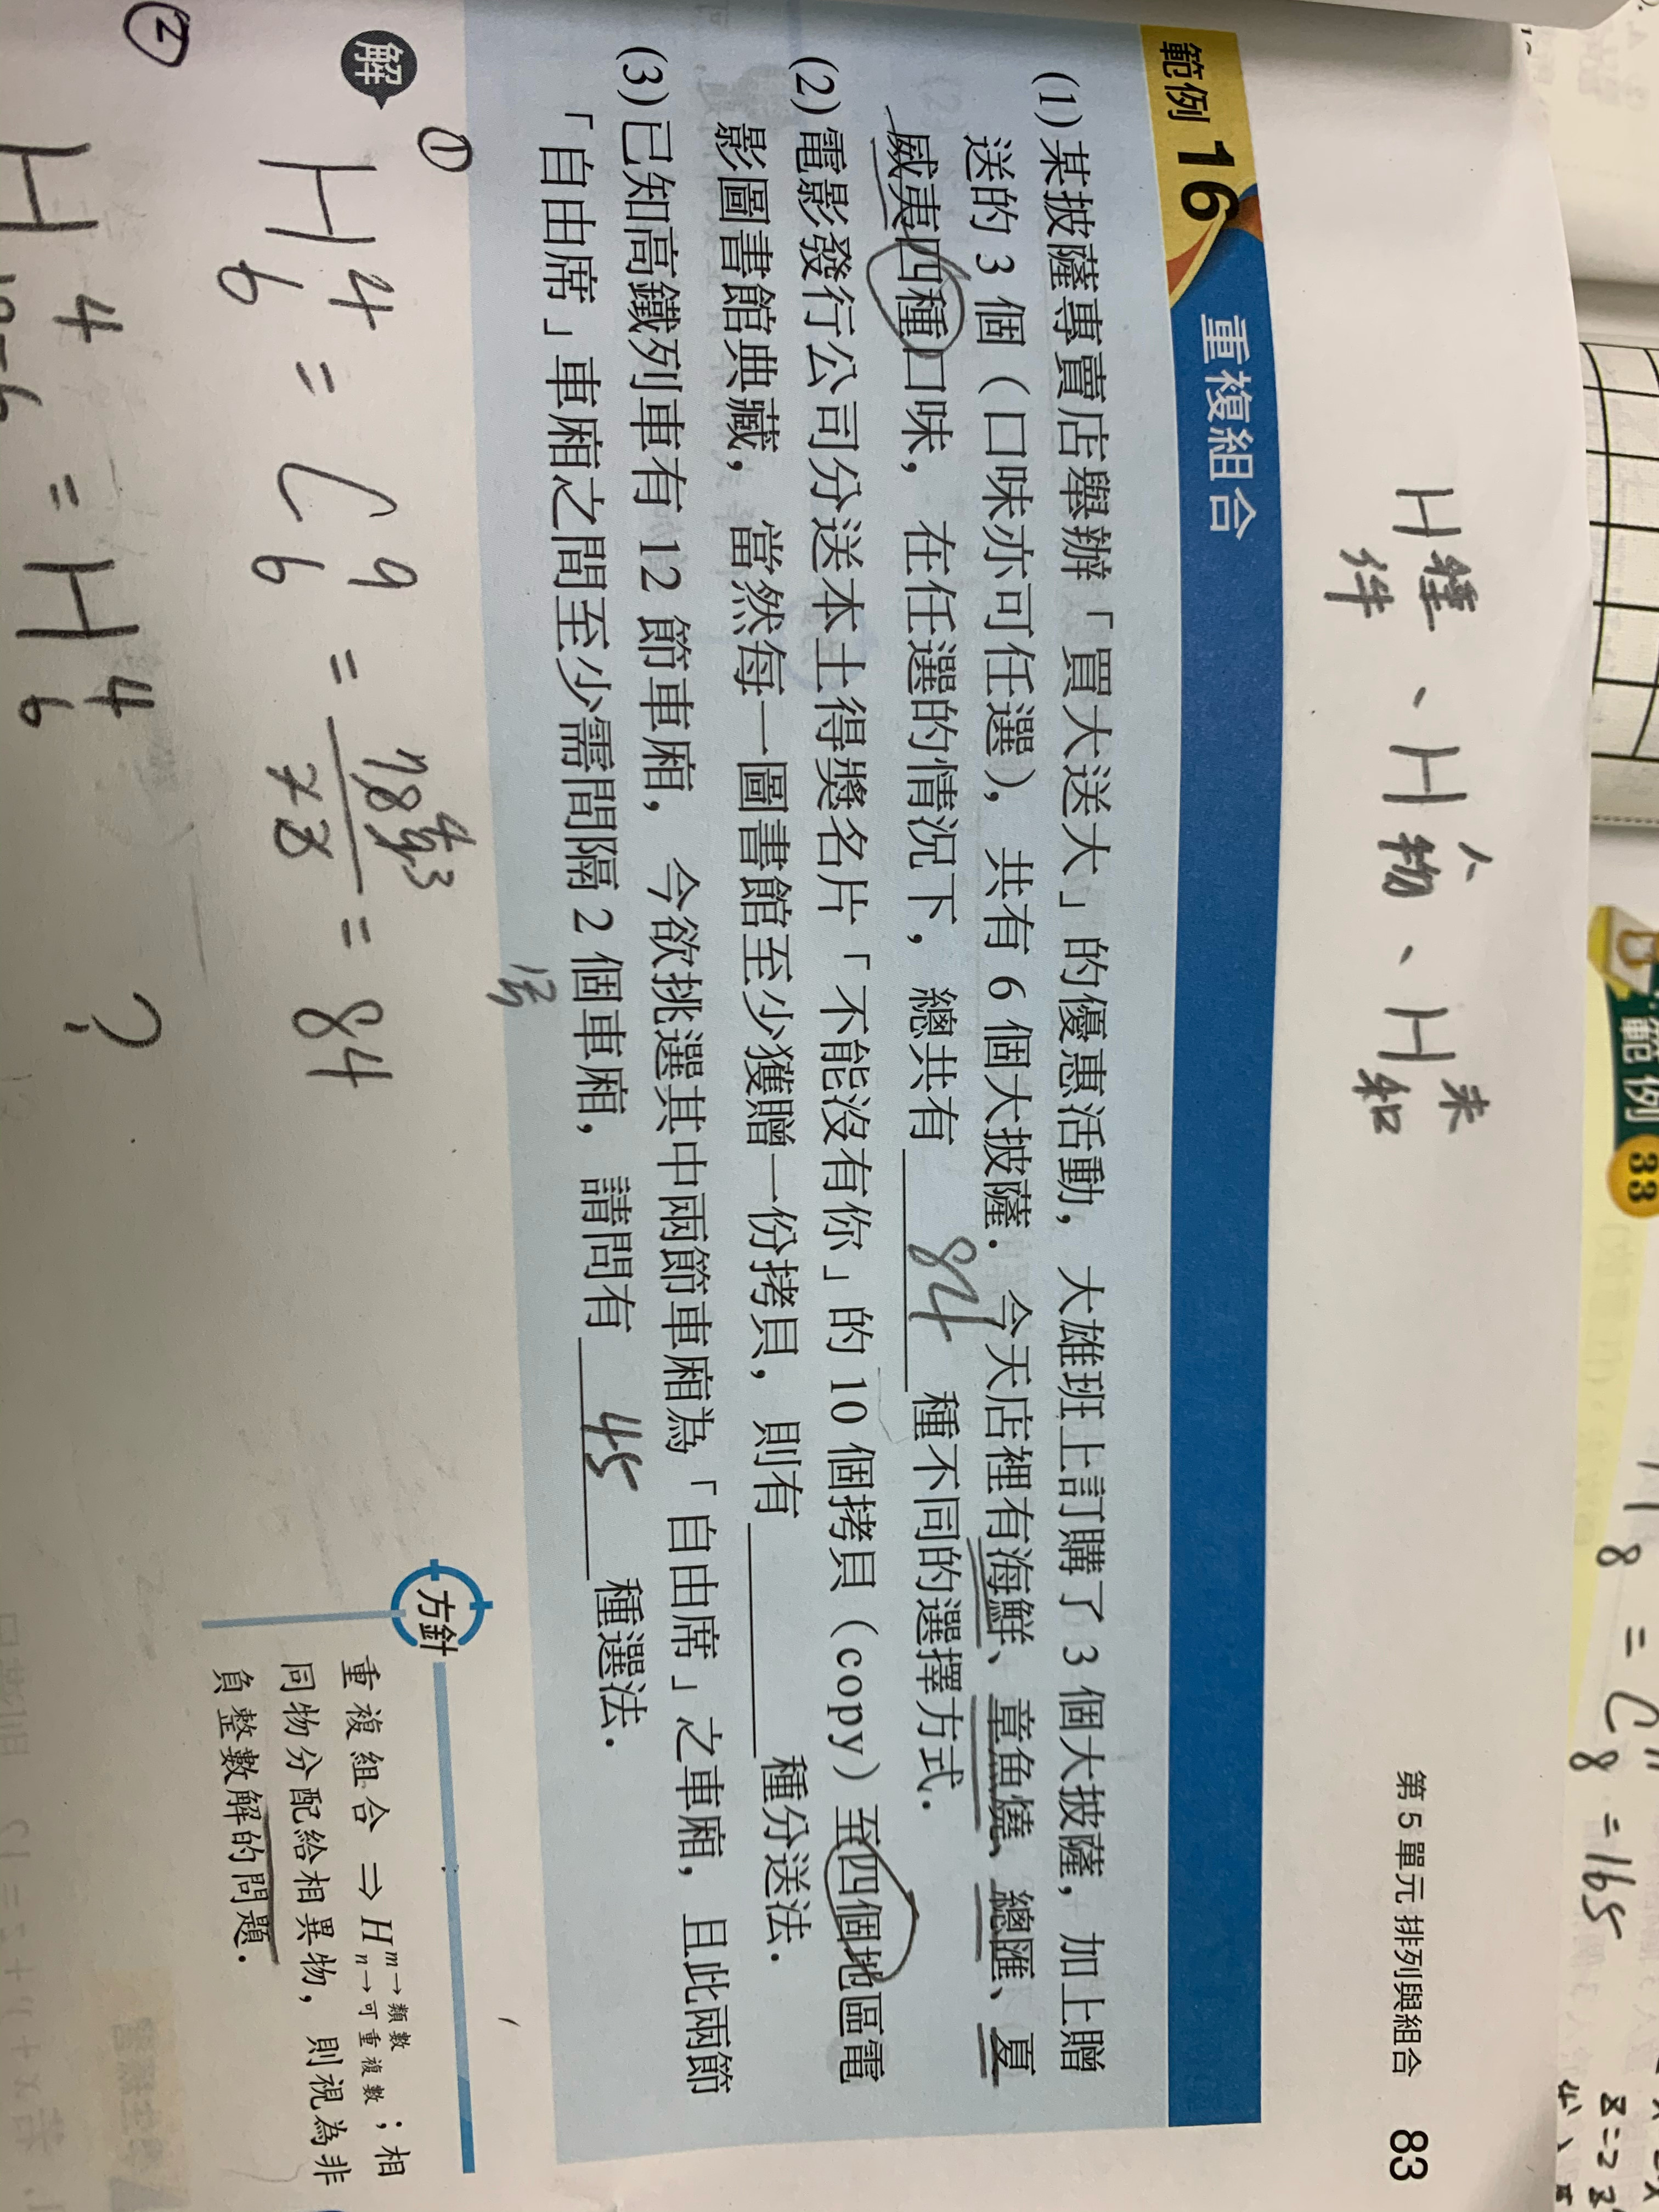 第 5 單元 排列與組合 83
H種件、H人物、H未和
範例 16 重複組合
(1)某披薩專賣店舉辦「買大送大」的優惠活動，大雄班上訂購了 3 個大披薩，加上贈
送的 3 個（口味亦可任選），共有 6 個大披薩．今天店裡有海鮮、章魚燒、總匯、夏
威夷四種口味，在任選的情況下，總共有 84 種不同的選擇方式．
(2)電影發行公司分送本土得獎名片「不能沒有你」的 10 個拷貝（copy）至四個地區電
影圖書館典藏，當然每一圖書館至少獲贈一份拷貝，則有＿＿＿種分送法．
(3)已知高鐵列車有 12 節車廂，今欲挑選其中兩節車廂為「自由席」之車廂，且此兩節
「自由席」車廂之間至少需間隔 2 個車廂，請問有 45 種選法．
解
① H 4 6 = C 9 6 = = 84
② H 4 = H 4 6 ?
方針
重複組合 ⇒ H m→類數 n→可重複數；相
同物分配給相異物，則視為非
負整數解的問題．
範例 33
8 = C 8 = 165